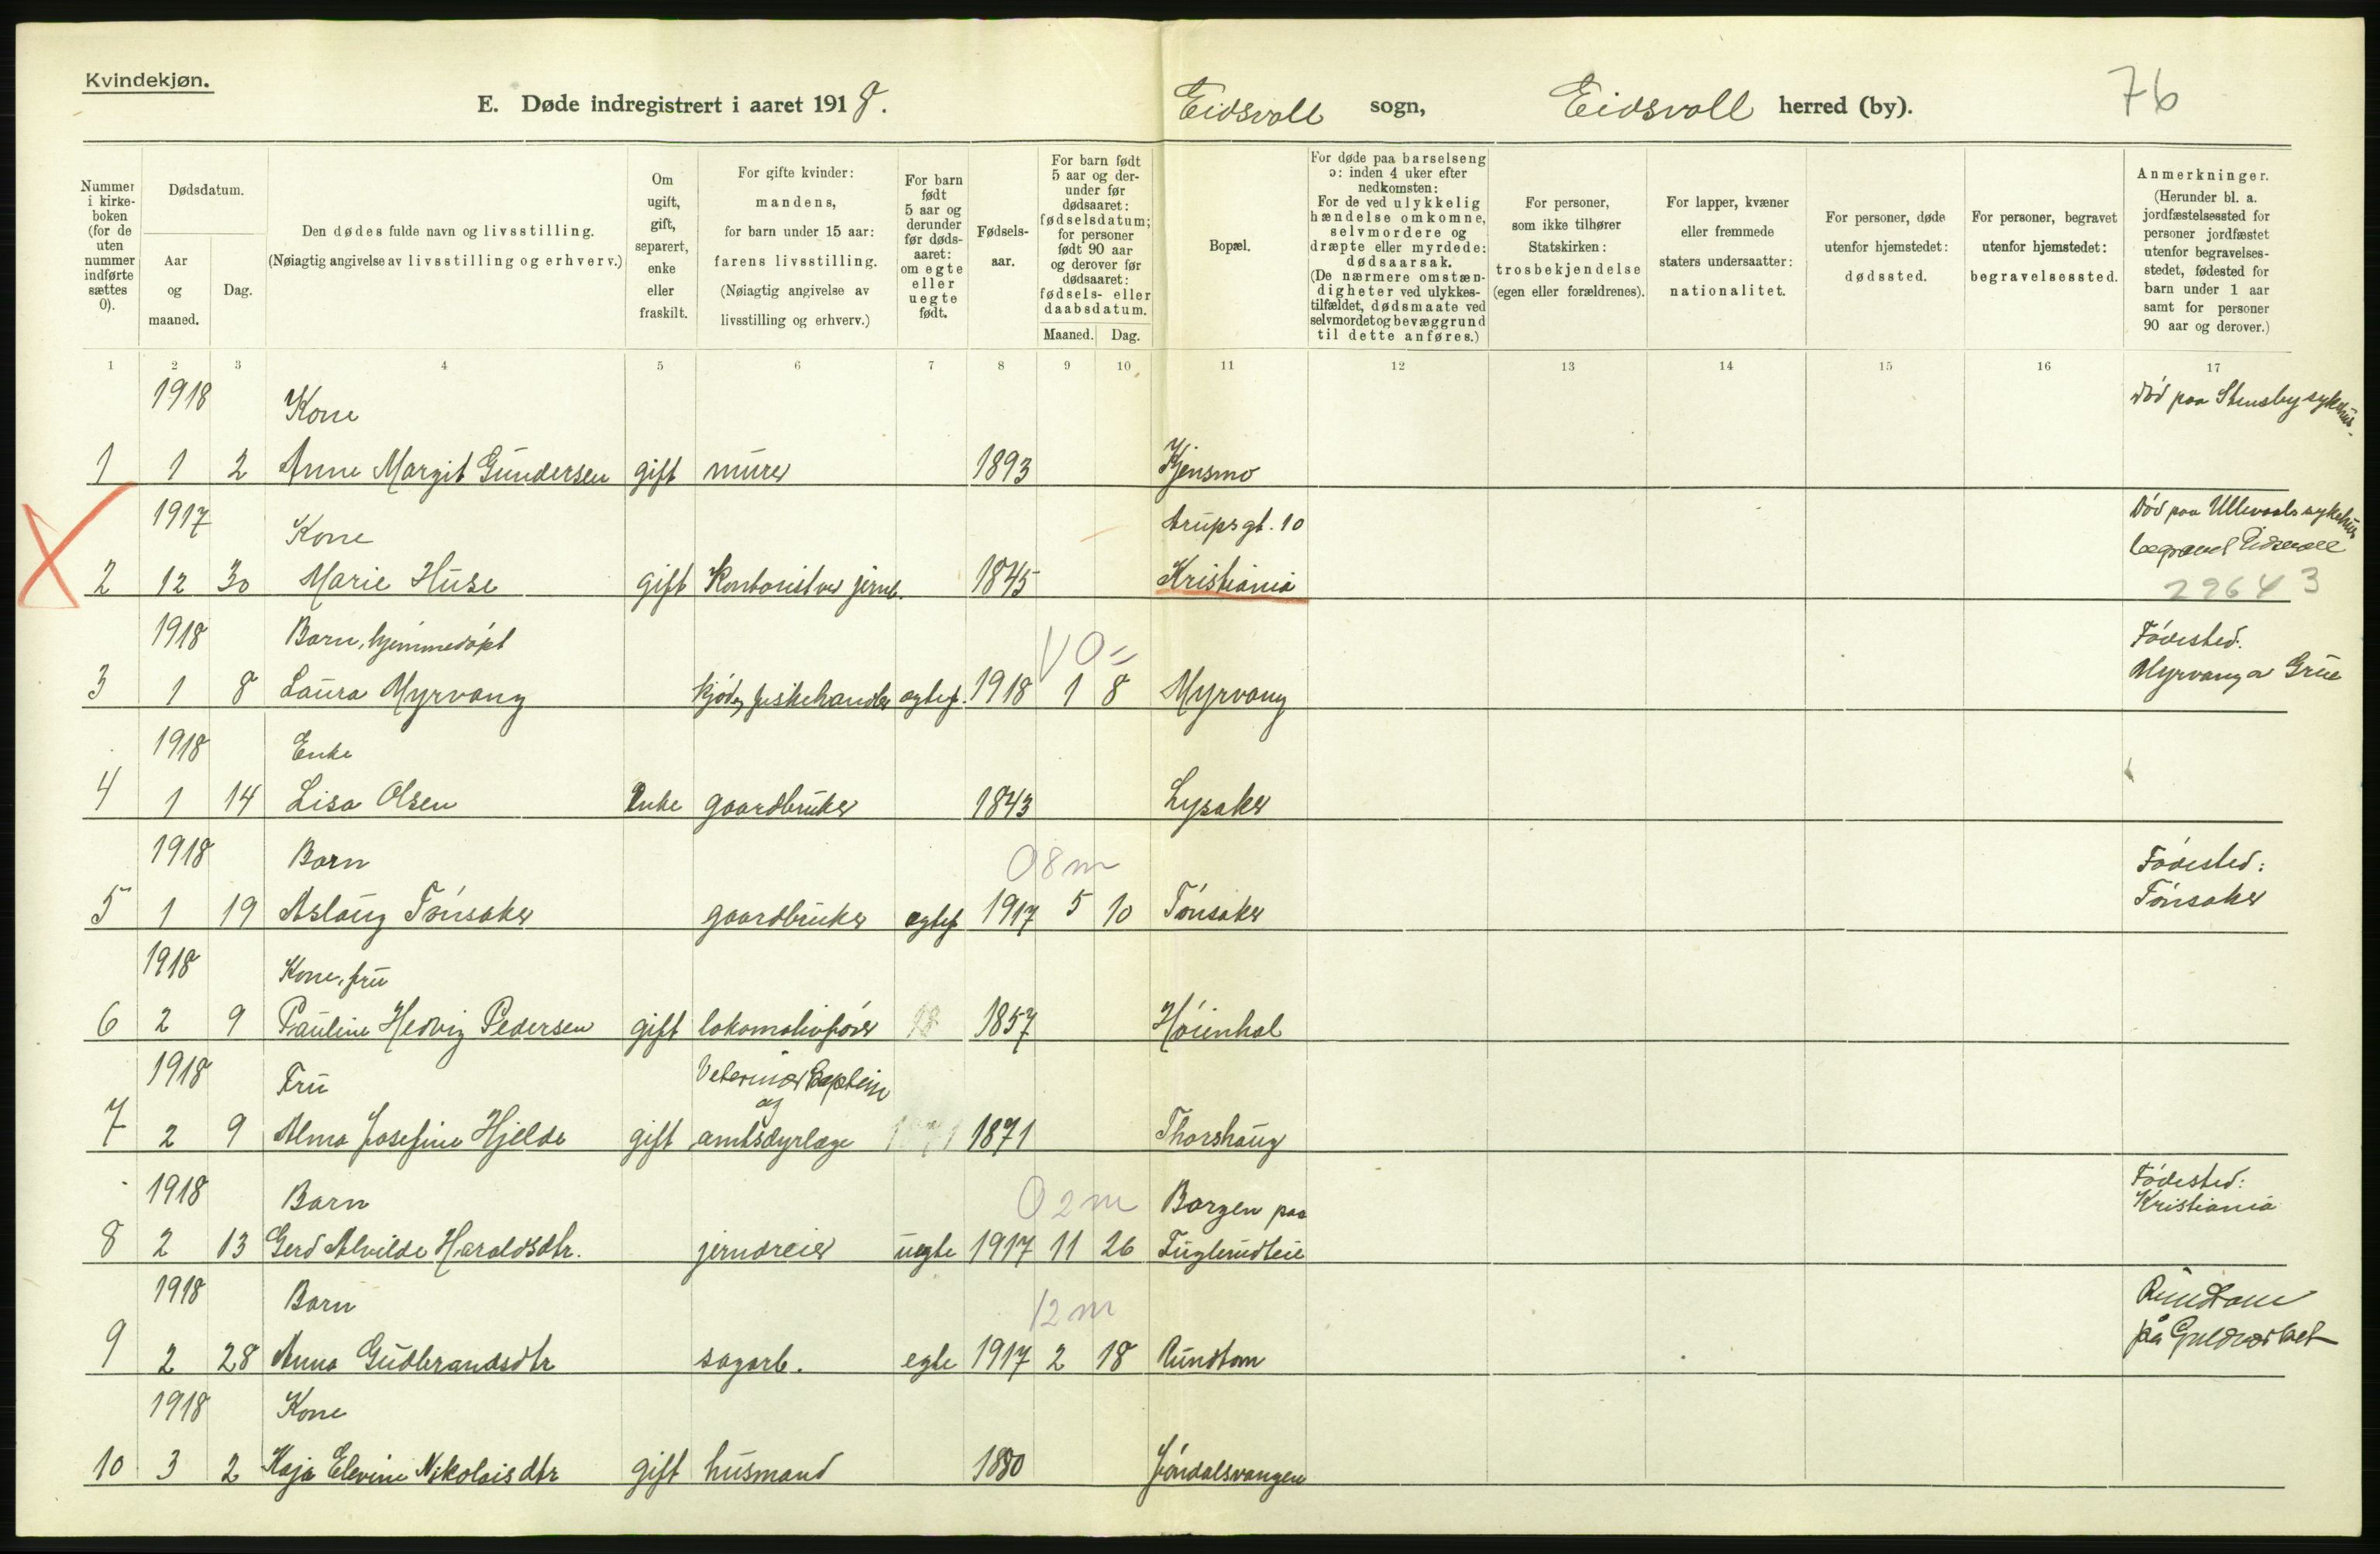 Kvindekjøn.
E. Døde indregistrert i aaret 1918.
Eidsvoll sogn, Eidsvoll herred (by).
76
Nummer i kirkeboken (for de uten nummer indførte sættes 0).
Dødsdatum.
Aar og maaned.
Dag.
Den dødes fulde navn og livsstilling.
(Nøiagtig angivelse av livsstilling og erhverv.)
Om ugift, gift, separert, enke eller fraskilt.
For gifte kvinder: mandens, for barn under 15 aar: farens livsstilling. (Nøiagtig angivelse av livsstilling og erhverv.)
For barn født 5 aar og derunder før dødsaaret: om egte eller uegte født.
Fødselsaar.
For barn født 5 aar og derunder før dødsaaret: fødselsdatum; for personer født 90 aar og derover før dødsaaret: fødsels- eller daabsdatum.
Maaned. Dag.
Bopæl.
For døde paa barselseng ɔ: inden 4 uker efter nedkomsten: For de ved ulykkelig hændelse omkomne, selvmordere og dræpte eller myrdede: dødsaarsak. (De nærmere omstændigheter ved ulykkestilfældet, dødsmaate ved selvmordet og bevæggrund til dette anføres.)
For personer, som ikke tilhører Statskirken: trosbekjendelse (egen eller forældrenes).
For lapper, kvæner eller fremmede staters undersaatter: nationalitet.
For personer, døde utenfor hjemstedet: dødssted.
For personer, begravet utenfor hjemstedet: begravelsessted.
Anmerkninger. (Herunder bl. a. jordfæstelsessted for personer jordfæstet utenfor begravelsesstedet, fødested for barn under 1 aar samt for personer 90 aar og derover.)
1 2 3 4 5 6 7 8 9 10 11 12 13 14 15 16 17
1918 Kone Død paa Stensby sykehus.
1 1 2 Anne Margit Gundersen gift murer 1893 Kjensmo
1917 Kone Arupsgt. 10 Død paa Ullevaals sykehus
begravet Eidsvoll
2 12 30 Marie Huse gift Kontorist ved jernb. 1845 Kristiania
22643
1918 Barn, hjemmedøpt Fødested:
3 1 8 Laura Myrvang kjød og fiskehandler egtef. 1918 1 8 Myrvang Myrvang a Grue
1918 Enke
4 1 14 Lisa Olsen Enke gaardbruker 1843 Lysaker
1918 Barn 0 8 m Fødested:
5 1 19 Aslaug Tønsaker gaardbruker egtef 1917 5 10 Tønsaker Tønsaker
1918 Kone, fru
6 2 9 Pauline Hedvig Pedersen gift lokomotivfører 18 1857 Høienhal
1918 Fru Veterinær Captein
og
7 2 9 Alma Josefine Hjelde gift amtsdyrlæge 1871 1871 Thorshaug
1918 Barn 0 2 m Borgen paa Fødested:
Kristiania
8 2 13 Gerd Alvilde Haraldsdtr. jerndreier uegte 1917 11 26 Fuglerudteie
1918 Barn 12 m Rundtom
på Guldverket
9 2 28 Anna Gudbrandsdtr sagarb. egte 1917 2 18 Rundtom
1918 Kone
10 3 2 Kaja Elevine Nikolaisdtr gift husmand 1880 Jøndalsvangen